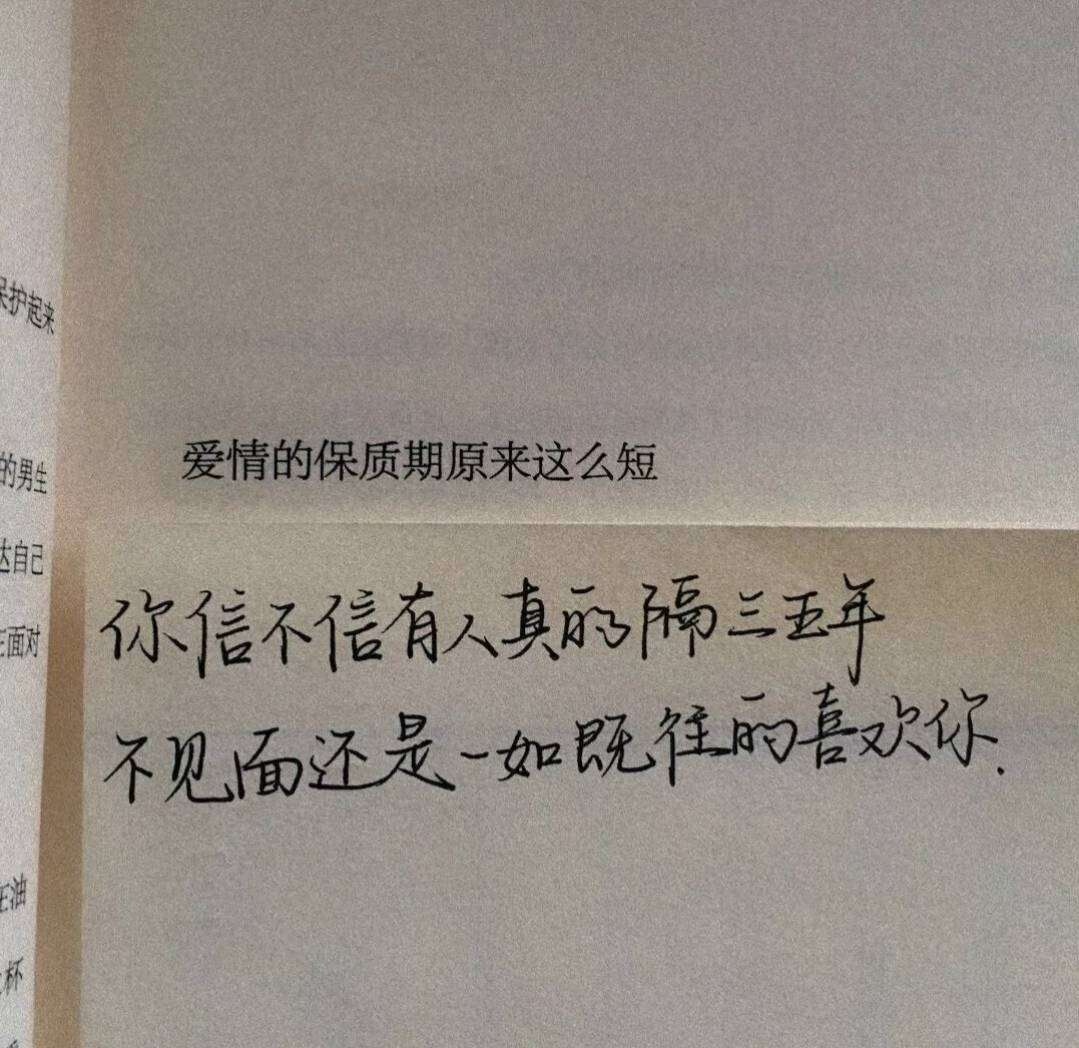 护起来
的男生
达自己
面对
油
杯
爱情的保质期原来这么短
你信不信有人真的隔三五年
不见面还是一如既往的喜欢你.